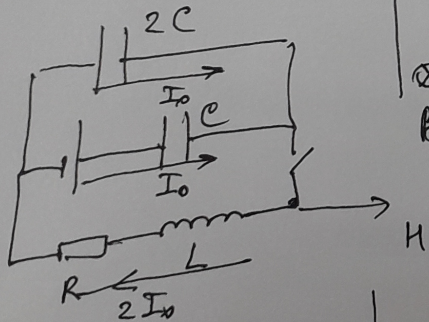 2C
I₀
C
I₀
H
L
R
2I₀